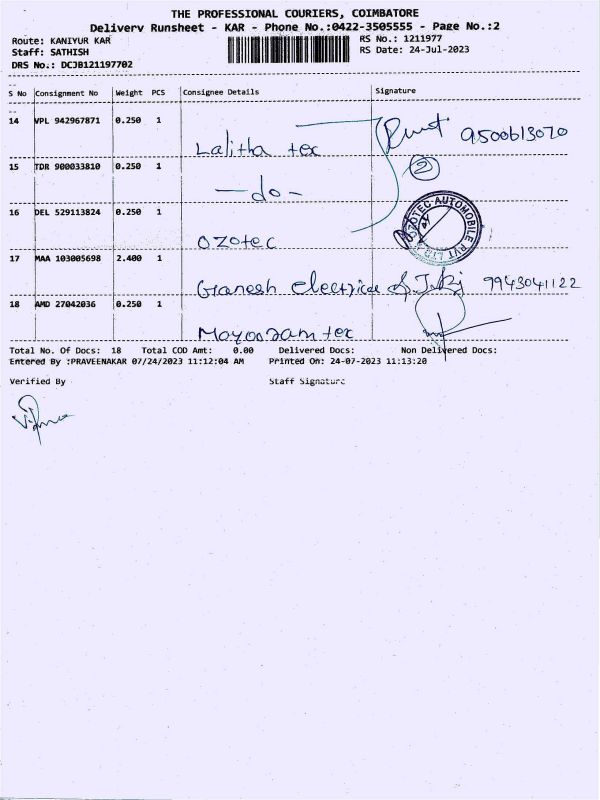 THE PROFESSIONAL COURIERS, COIMBATORE
Delivery Runsheet - KAR - Phone No.:0422-3505555 - Page No.:2
Route: KANIYUR KAR
RS No.: 1211977
Staff: SATHISH
RS Date: 24-Jul-2023
DRS No.: DCJB121197702
S No Consignment No Weight PCS Consignee Details Signature
14 VPL 942967871 0.250 1
Lalitha tex 9500613070
15 TDR 900033810 0.250 1
-do- 2
16 DEL 529113824 0.250 1
Ozotec
OZOTEC AUTOMOBILE PVT LTD
17 MAA 103005698 2.400 1
Ganesh Electrical 9943041122
18 AMD 27042036 0.250 1
Mayooram tex
Total No. Of Docs: 18 Total COD Amt: 0.00 Delivered Docs: Non Delivered Docs:
Entered By :PRAVEENAKAR 07/24/2023 11:12:04 AM Printed On: 24-07-2023 11:13:20
Verified By Staff Signature